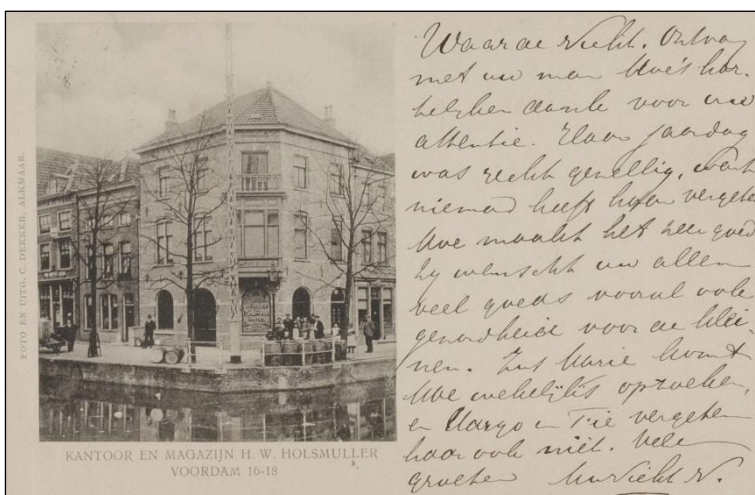 FOTO EN UITG. C. DEKKER, ALKMAAR.
KANTOOR EN MAGAZIJN H. W. HOLSMULLER
VOORDAM 16-18
Waarde Nicht. Ontvang
met uw man Moe's har-
telijken dank voor uw
attentie. Haar jaardag
was recht gezellig, want
niemand heeft haar vergeten
Moe maakt het zeer goed
zij wenscht uw allen
veel goeds vooral ook
gezondheid voor de klei-
nen. Zus Marie komt
Moe wekelijks opzoeken,
en Margo en Trie vergeten
haar ook niet. Vele
groeten Uw Nicht N.